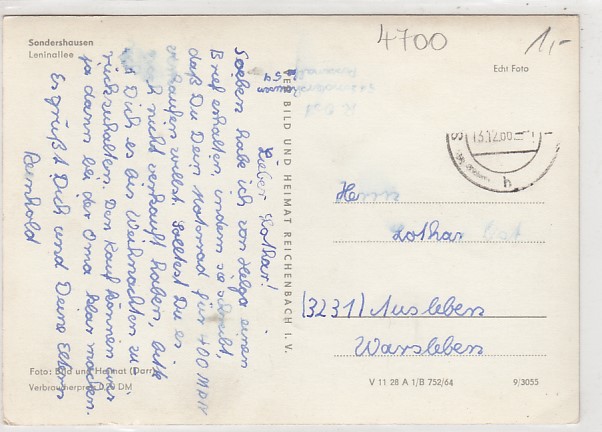 4700
1,-
Sondershausen
Leninallee
Echt Foto
Lieber Lothar!
Soeben habe ich von Helga einen
Brief erhalten, indem sie schreibt,
daß Du Dein Motorrad für 400 MDN
verkaufen willst. Solltest Du es
nicht verkauft haben, bitte
ich Dich es bis Weihnachten zu-
rückzuhalten. Den Kauf können wir
ja dann bei der Oma klar machen.
Es grüßt Dich und Deine Eltern
Reinhold
VEB BILD UND HEIMAT REICHENBACH I. V.
13.12.66
h
Herrn
Lothar
(3231) Ausleben
Warsleben
Foto: Bild und Heimat (Darr)
Verbraucherpreis 0,20 DM
V 11 28 A 1/B 752/64
9/3055